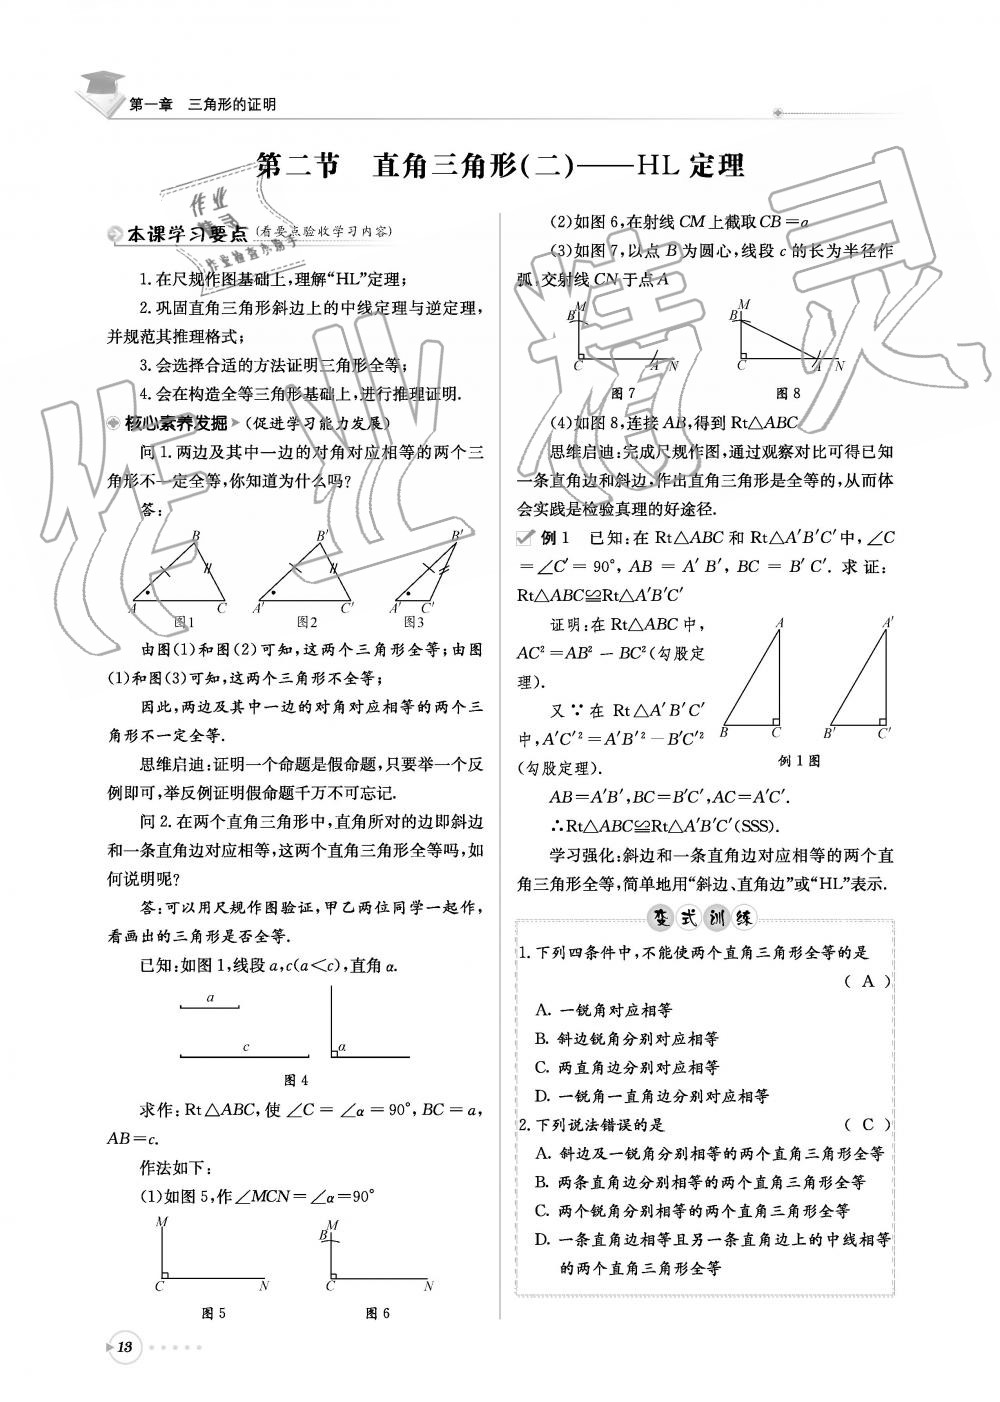 第一章 三角形的证明
第二节 直角三角形(二)——HL 定理
本课学习要点(看要点验收学习内容)
1.在尺规作图基础上,理解“HL”定理;
2.巩固直角三角形斜边上的中线定理与逆定理,
并规范其推理格式;
3.会选择合适的方法证明三角形全等;
4.会在构造全等三角形基础上,进行推理证明.
核心素养发掘(促进学习能力发展)
问 1.两边及其中一边的对角对应相等的两个三
角形不一定全等,你知道为什么吗?
答:
B B′ B′
A C A′ C′ A′ C′
图1 图2 图3
由图(1)和图(2)可知,这两个三角形全等;由图
(1)和图(3)可知,这两个三角形不全等;
因此,两边及其中一边的对角对应相等的两个三
角形不一定全等.
思维启迪:证明一个命题是假命题,只要举一个反
例即可,举反例证明假命题千万不可忘记.
问 2.在两个直角三角形中,直角所对的边即斜边
和一条直角边对应相等,这两个直角三角形全等吗,如
何说明呢?
答:可以用尺规作图验证,甲乙两位同学一起作,
看画出的三角形是否全等.
已知:如图 1,线段 a,c(a<c),直角 α.
a
c α
图 4
求作:Rt△ABC,使 ∠C = ∠α = 90°, BC = a,
AB=c.
作法如下:
(1)如图 5,作∠MCN=∠α=90°
M B M
C N C N
图 5 图 6
13
(2)如图 6,在射线 CM 上截取 CB=a
(3)如图 7,以点 B 为圆心,线段 c 的长为半径作
弧,交射线 CN 于点 A
M M
B B
C A N C A N
图 7 图 8
(4)如图 8,连接 AB,得到 Rt△ABC
思维启迪:完成尺规作图,通过观察对比可得已知
一条直角边和斜边,作出直角三角形是全等的,从而体
会实践是检验真理的好途径.
例 1 已知:在 Rt△ABC 和 Rt△A′B′C′中,∠C
=∠C′= 90°, AB = A′B′, BC = B′C′. 求证:
Rt△ABC≌Rt△A′B′C′
证明:在 Rt△ABC 中,
AC²=AB² - BC²(勾股定
理).
又∵在 Rt△A′B′C′
中,A′C′²=A′B′²-B′C′²
(勾股定理).
A A′
B C B′ C′
例 1 图
AB=A′B′,BC=B′C′,AC=A′C′.
∴Rt△ABC≌Rt△A′B′C′(SSS).
学习强化:斜边和一条直角边对应相等的两个直
角三角形全等,简单地用“斜边、直角边”或“HL”表示.
变式训练
1.下列四条件中,不能使两个直角三角形全等的是
( A )
A. 一锐角对应相等
B. 斜边锐角分别对应相等
C. 两直角边分别对应相等
D. 一锐角一直角边分别对应相等
2.下列说法错误的是 ( C )
A. 斜边及一锐角分别相等的两个直角三角形全等
B. 两条直角边分别相等的两个直角三角形全等
C. 两个锐角分别相等的两个直角三角形全等
D. 一条直角边相等且另一条直角边上的中线相等
的两个直角三角形全等
作业精灵